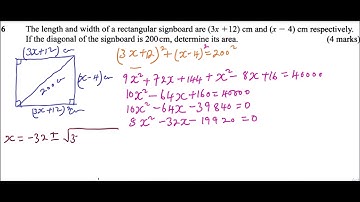 6 The length and width of a rectangular signboard are (3x + 12) cm and (x − 4) cm respectively.
If the diagonal of the signboard is 200 cm, determine its area. (4 marks)
(3x+12) cm
(3x+12)² + (x−4)² = 200²
200cm
(x−4) cm
9x² + 72x + 144 + x² − 8x + 16 = 40000
10x² − 64x + 160 = 40000
10x² − 64x − 39840 = 0
(3x+12) cm
8x² − 32x − 19920 = 0
x = −32 ± √3